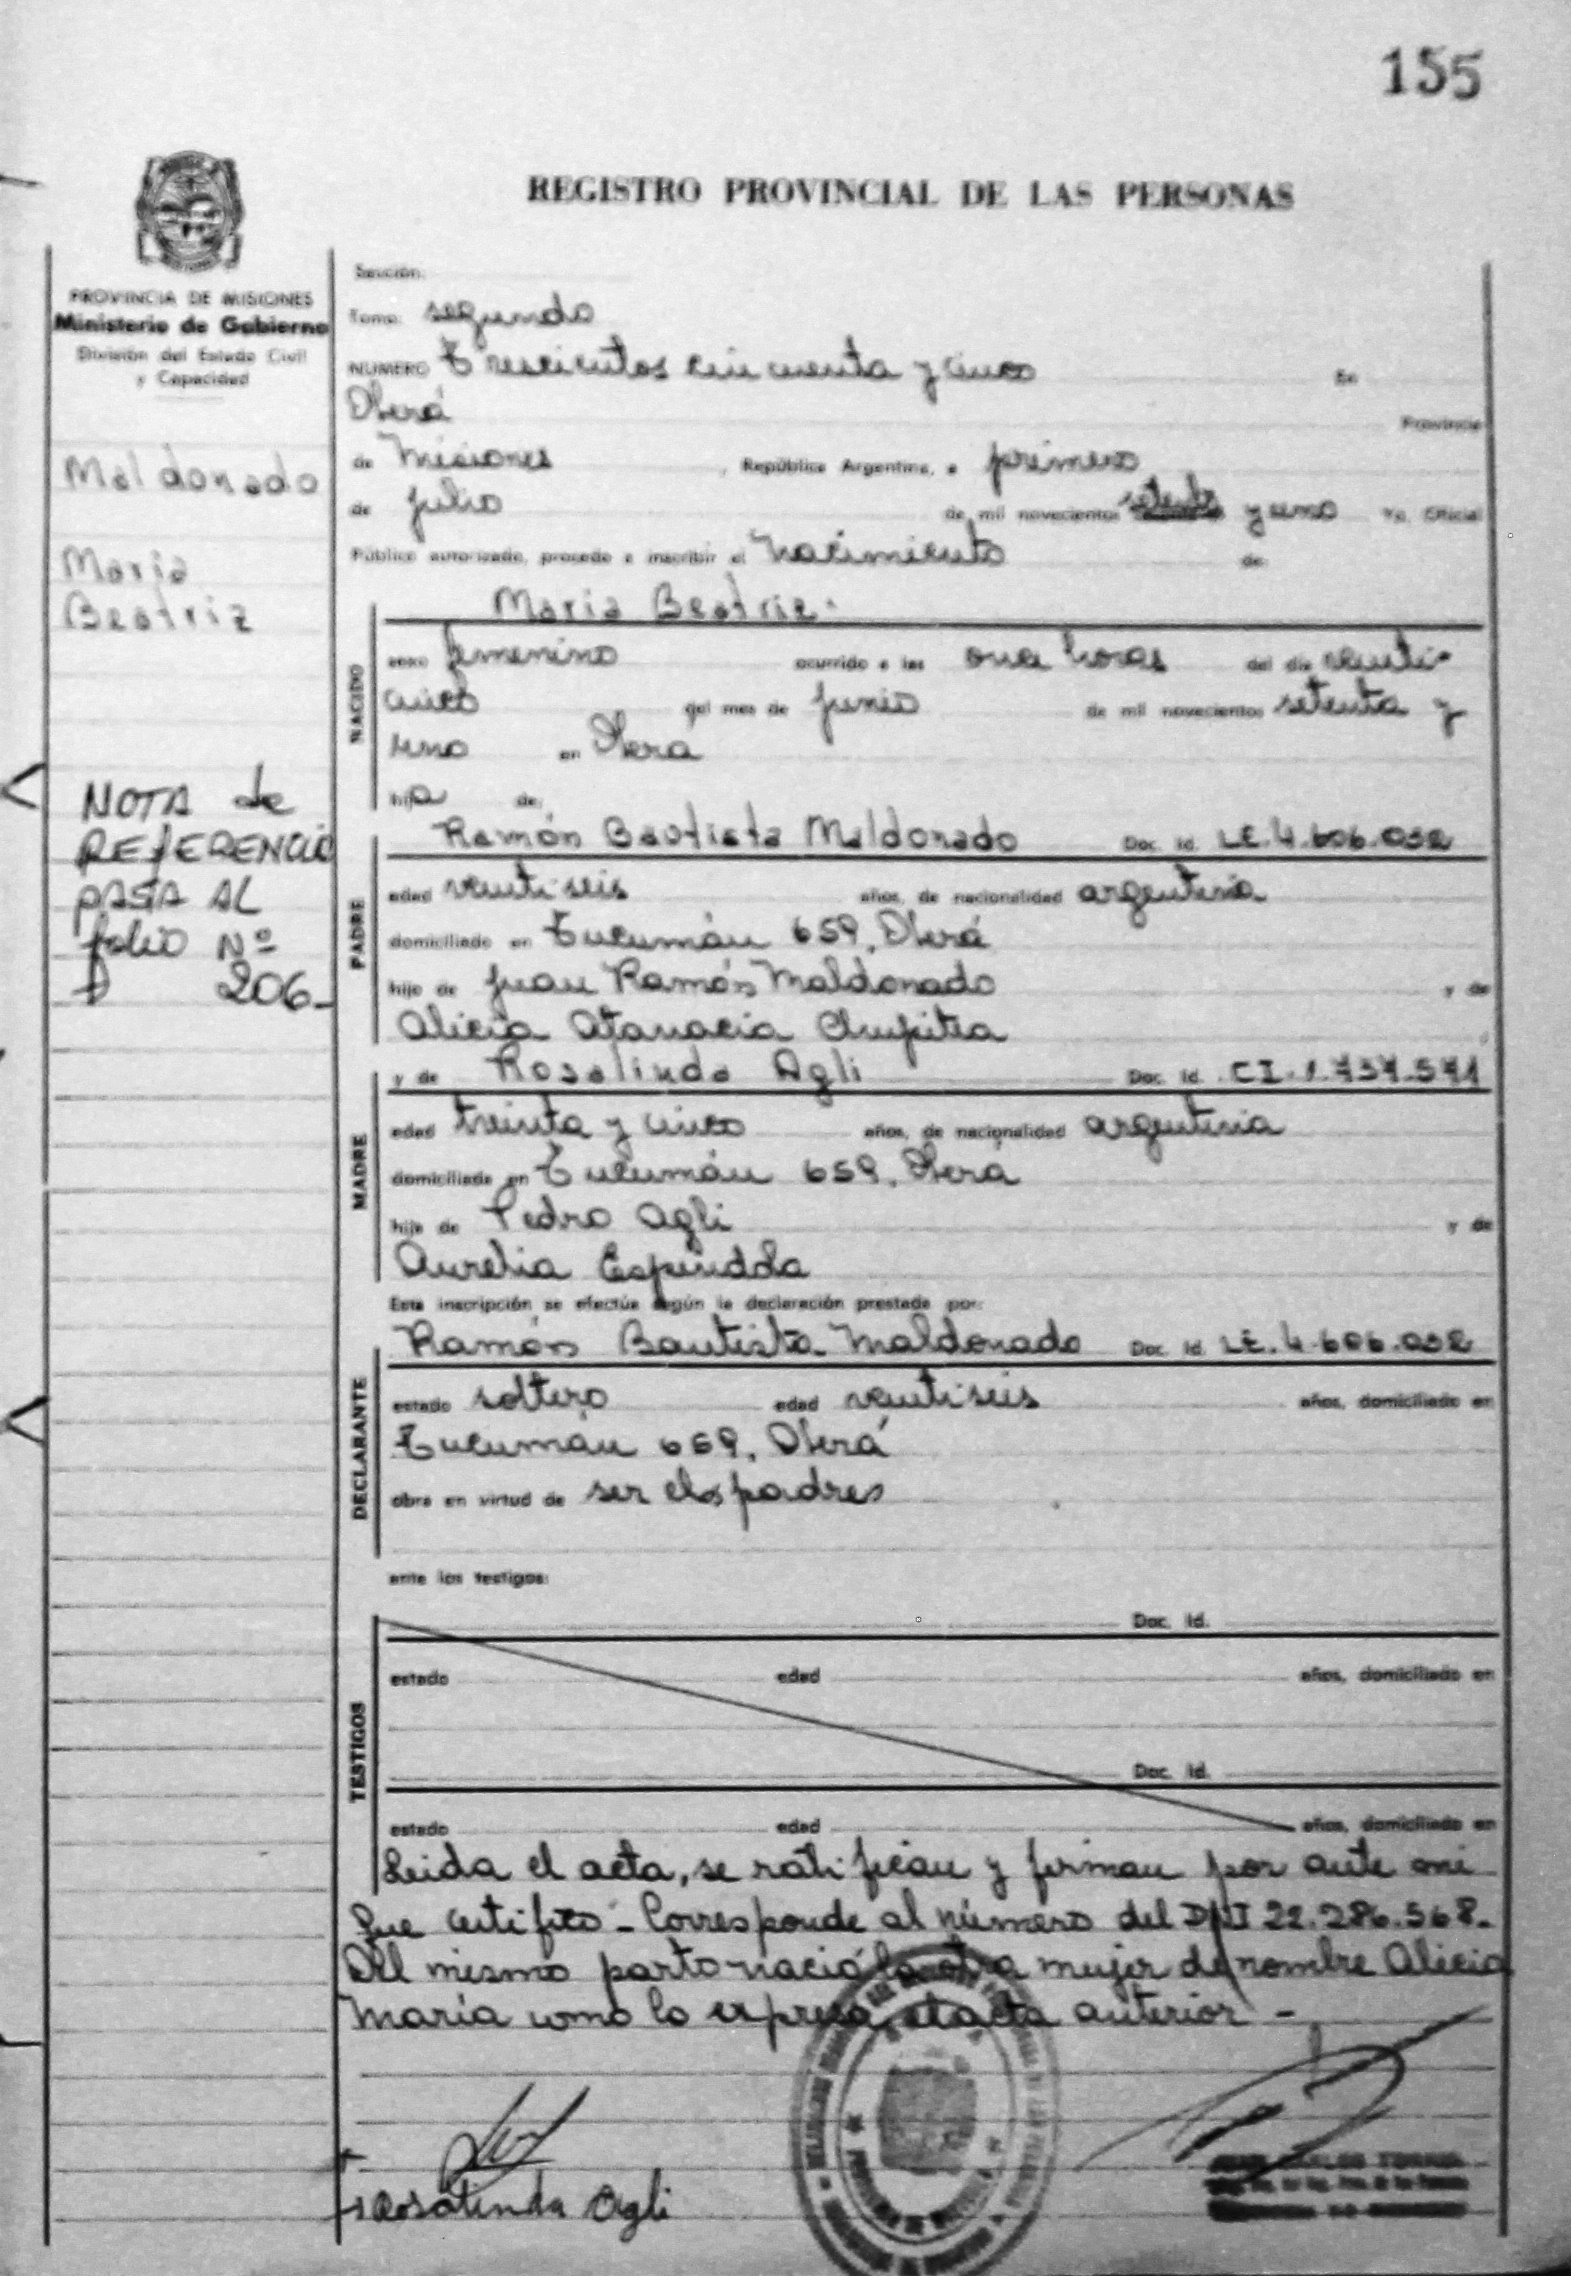 155
REGISTRO PROVINCIAL DE LAS PERSONAS
PROVINCIA DE MISIONES
Ministerio de Gobierno
División del Estado Civil
y Capacidad
Maldonado
Maria
Beatriz
NOTA de
REFERENCIA
PASA AL
folio Nº
206-
Sección:
Tomo: segundo
NUMERO Trescientos cincuenta y cinco En
Oberá Provincia
de Misiones, República Argentina, a primero
de julio de mil novecientos setenta y uno Yo, Oficial
Público autorizado, procedo a inscribir el Nacimiento de:
Maria Beatriz.
NACIDO
sexo femenino ocurrido a las once horas del día veinti-
cinco del mes de junio de mil novecientos setenta y
uno en Oberá
hija de:
Ramón Bautista Maldonado Doc. Id. LE. 4.606.032
PADRE
edad veintiseis años, de nacionalidad argentina
domiciliado en Tucumán 659, Oberá
hijo de Juan Ramón Maldonado y de
Alicia Atanacia Chupitea
y de Rosalinda Agli Doc. Id. CI. 1.737.571
MADRE
edad treinta y cinco años, de nacionalidad argentina
domiciliada en Tucumán 659, Oberá
hija de Pedro Agli y de
Aurelia Espindola
Esta inscripción se efectúa según la declaración prestada por:
Ramón Bautista Maldonado Doc. Id. LE. 4.606.032
DECLARANTE
estado soltero edad veintiseis años, domiciliado en
Tucumán 659, Oberá
obra en virtud de ser los padres
ante los testigos:
TESTIGOS
Doc. Id.
estado edad años, domiciliado en
Doc. Id.
estado edad años, domiciliado en
Leida el acta, se ratifican y firman por ante mi
que certifico - Corresponde al número del DNI 22.286.568.-
Del mismo parto nació la otra mujer de nombre Alicia
María como lo expresa el acta anterior -
Rosalinda Agli